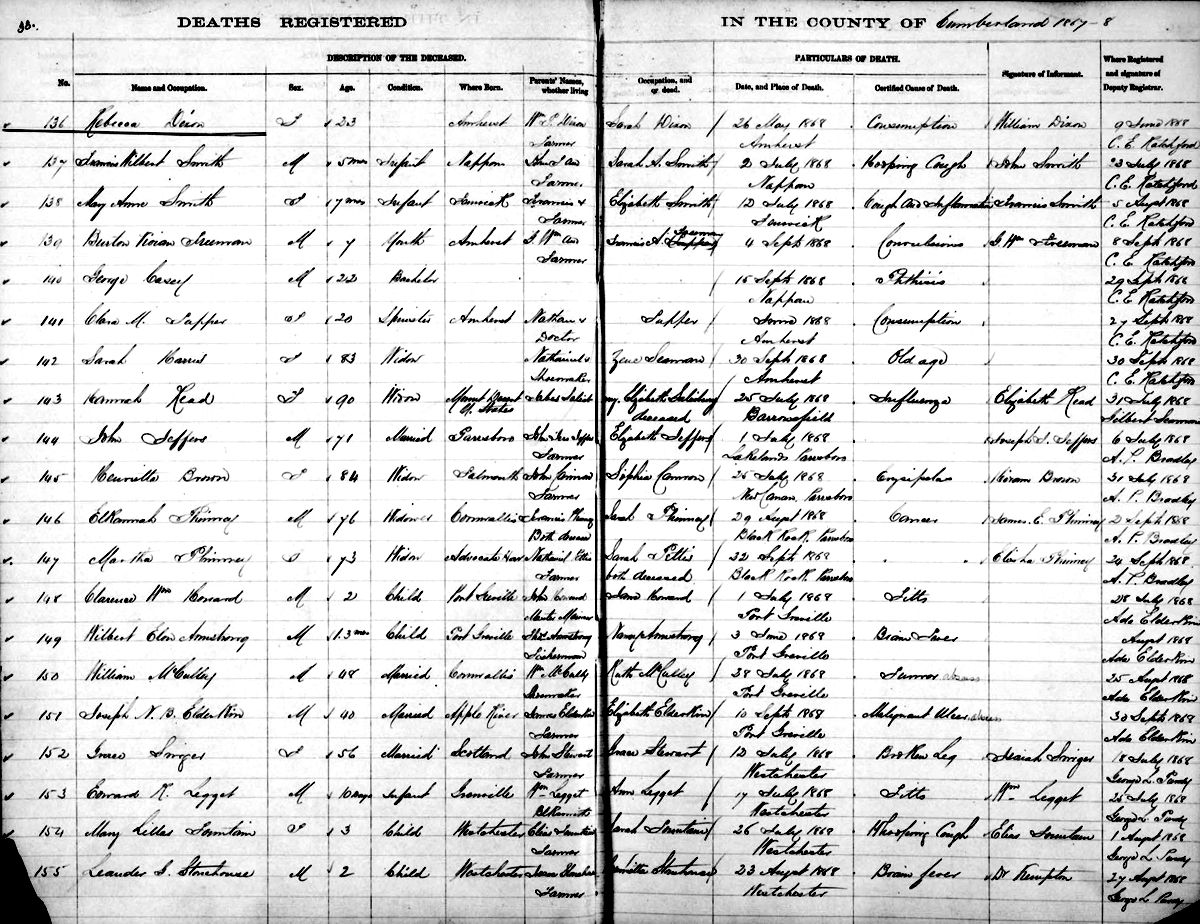 33.
DEATHS REGISTERED IN THE COUNTY OF Cumberland 1867-8
DESCRIPTION OF THE DECEASED. PARTICULARS OF DEATH.
No. Name and Occupation. Sex. Age. Condition. Where Born. Parents' Names, whether living Occupation, and or dead. Date, and Place of Death. Certified Cause of Death. Signature of Informant. Where Registered and signature of Deputy Registrar.
136 Rebecca Dixon F 23 Amherst Dixon Sarah Dixon 26 May 1868 Consumption William Dixon 9 June 1868
Farmer Amherst C. E. Ratchford
137 Francis Wilbert Smith M 5 mos Infant Nappan Sarah A. Smith 2 July 1868 Hooping Cough John Smith 23 July 1868
Farmer Nappan C. E. Ratchford
138 May Anne Smith F 7 mos Infant Fenwick Francis & Elizabeth Smith 12 July 1868 Cough and Inflammation Francis Smith 5 August 1868
Farmer Fenwick C. E. Ratchford
139 Burton Freeman M 7 Youth Amherst G Wm and Francis A. 4 Sept 1868 Convulsions G Wm Freeman 8 Sept 1868
Farmer C. E. Ratchford
140 George Casey M 22 Bachelor 15 Sept 1868 Phthisis 29 Sept 1868
Nappan C. E. Ratchford
141 Clara M. Tupper F 20 Spinster Amherst Nathan & Tupper June 1868 Consumption 27 Sept 1868
Doctor Amherst C. E. Ratchford
142 Sarah Harris F 83 Widow Nathaniel & Seaman 20 Sept 1868 Old age 30 Sept 1868
Shoemaker Amherst C. E. Ratchford
143 Hannah Read F 90 Widow Mount Desert Elizabeth Salisbury 25 July 1868 Influenza Elizabeth Read 31 July 1868
U. States deceased Barronsfield Gilbert Seaman
144 John Jeffers M 71 Married Parrsboro Elizabeth Jeffers 1 July 1868 Joseph S. Jeffers 6 July 1868
Farmer Lakelands Parrsboro A. P. Bradley
145 Henrietta Brown F 84 Widow Falmouth John Cannon Sophia Cannon 25 July 1868 Erysipelas Hiram Brown 31 July 1868
Farmer New Canaan, Parrsboro A. P. Bradley
146 Elkannah Phinney M 76 Widower Cornwallis Sarah Phinney 29 August 1868 Cancer James E. Phinney 2 Sept 1868
Both deceased Black Rock, Parrsboro A. P. Bradley
147 Martha Phinney F 73 Widow Advocate Har Nathaniel Pettis Sarah Pettis 22 Sept 1868 Elisha Phinney 24 Sept 1868
Farmer both deceased Black Rock Parrsboro A. P. Bradley
148 Clarence Wm M 2 Child Port Greville John 1 July 1868 Fitts 28 July 1868
Master Mariner Port Greville Ade Elderkin
149 Wilbert Armstrong M 13 mos Child Port Greville Armstrong Nancy Armstrong 3 June 1868 Brain Fever August 1868
Fisherman Port Greville Ade Elderkin
150 William McCulley M 48 Married Cornwallis Wm McCully Ruth McCulley 28 July 1868 Tumor abscess 25 August 1868
Port Greville Ade Elderkin
151 Joseph N. B. Elderkin M 40 Married Apple River James Elderkin Elizabeth Elderkin 10 Sept 1868 Malignant Ulcer abscess 30 Sept 1868
Farmer Port Greville Ade Elderkin
152 Grace F 56 Married Scotland John Stewart Grace Stewart 12 July 1868 Broken Leg Isaiah 18 July 1868
Farmer Westchester George L. Purdy
153 Edward K. Legget M 10 days Infant Grenville Wm Legget Ann Legget 17 July 1868 Fitts Wm Legget 25 July 1868
Blksmith Westchester George L. Purdy
154 Mary Lilles Fountain F 3 Child Westchester Elias Fountain Sarah Fountain 26 July 1868 Whooping Cough Elias Fountain 1 August 1868
Farmer Westchester George L. Purdy
155 Leander S. Stonehouse M 2 Child Westchester Stonehouse Stonehouse 23 August 1868 Brain fever Dr Kempton 27 August 1868
Farmer Westchester George L. Purdy